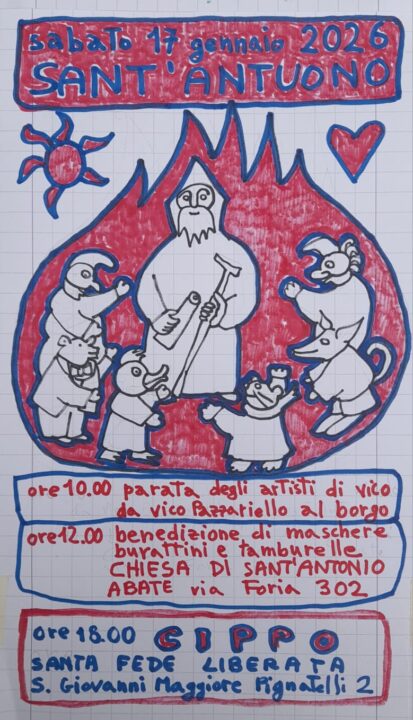 sabato 17 gennaio 2026
SANT'ANTUONO
ore 10.00 parata degli artisti di vico
da vico Pazzariello al borgo
ore 12.00 benedizione di maschere
burattini e tamburelle
CHIESA DI SANT'ANTONIO
ABATE via Foria 302
ore 18.00 CIPPO
SANTA FEDE LIBERATA
S. Giovanni Maggiore Pignatelli 2